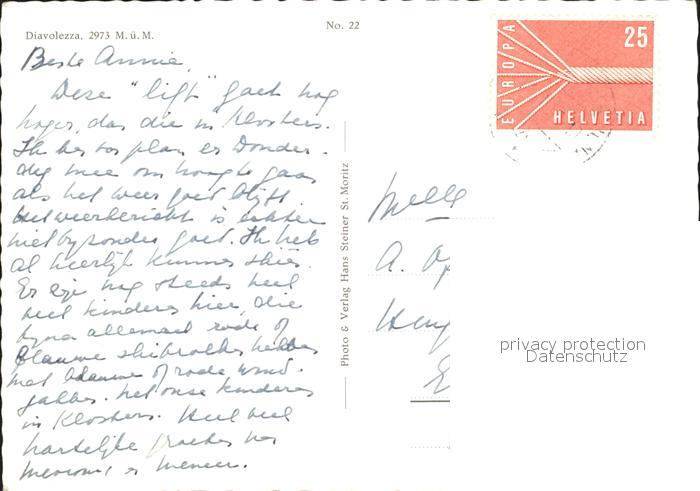 Diavolezza, 2973 M. ü. M.
No. 22
EUROPA
25
HELVETIA
Beste Annie,
Deze "lift" gaat nog
hoger, dan die in Klosters.
Ik ben van plan er Donder-
dag mee omhoog te gaan
als het weer goed blijft.
het weerbericht is echter
niet byzonder goed. Ik heb
al heerlijk kunnen skiën.
Er zijn nog steeds heel
veel kinderen hier, die
byna allemaal rode of
blauwe skibroeken hebben
met blauwe of rode wind-
jakken. net onze kinderen
in Klosters. Heel veel
hartelijke groeten van
mevrouw en meneer.
Photo & Verlag Hans Steiner St. Moritz
Melle
A.
privacy protection
Datenschutz